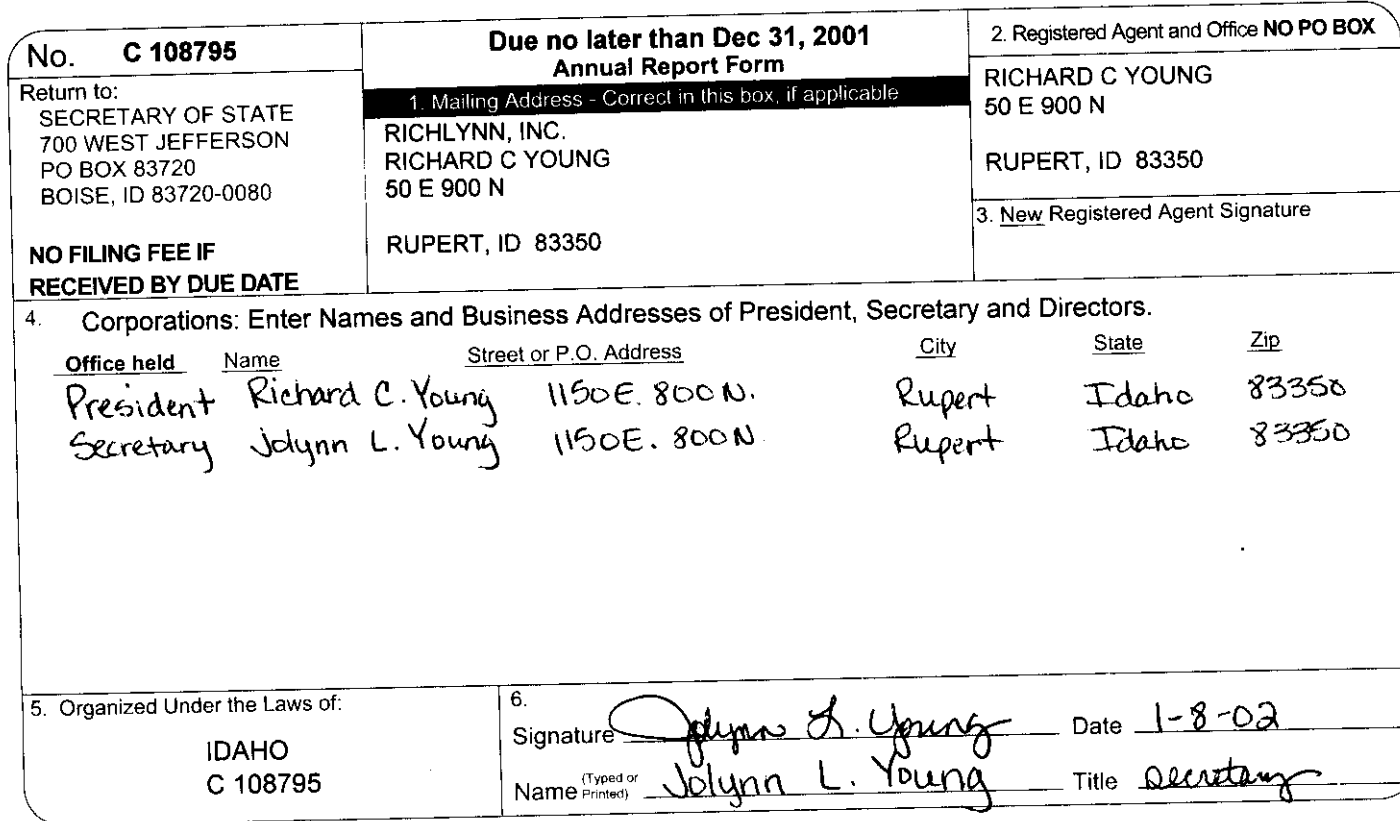 No. C 108795
Return to:
SECRETARY OF STATE
700 WEST JEFFERSON
PO BOX 83720
BOISE, ID 83720-0080
NO FILING FEE IF
RECEIVED BY DUE DATE
Due no later than Dec 31, 2001
Annual Report Form
1. Mailing Address - Correct in this box, if applicable
RICHLYNN, INC.
RICHARD C YOUNG
50 E 900 N
RUPERT, ID 83350
2. Registered Agent and Office NO PO BOX
RICHARD C YOUNG
50 E 900 N
RUPERT, ID 83350
3. New Registered Agent Signature
4. Corporations: Enter Names and Business Addresses of President, Secretary and Directors.
Office held Name Street or P.O. Address City State Zip
President Richard C. Young 1150 E. 800 N. Rupert Idaho 83350
Secretary Jolynn L. Young 1150 E. 800 N Rupert Idaho 83350
5. Organized Under the Laws of:
IDAHO
C 108795
6.
Signature Jolynn L. Young Date 1-8-02
Name (Typed or Printed) Jolynn L. Young Title Secretary